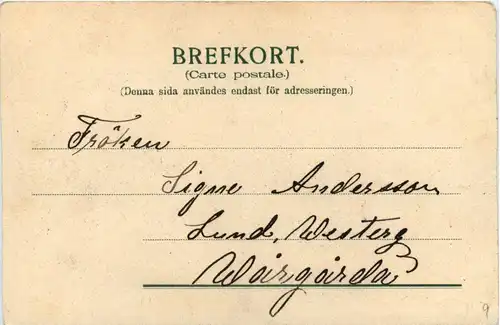 BREFKORT.
(Carte postale.)
(Denna sida användes endast för adresseringen.)
Fröken
Signe Andersson
Lund, Westerg
Wårgårda
9